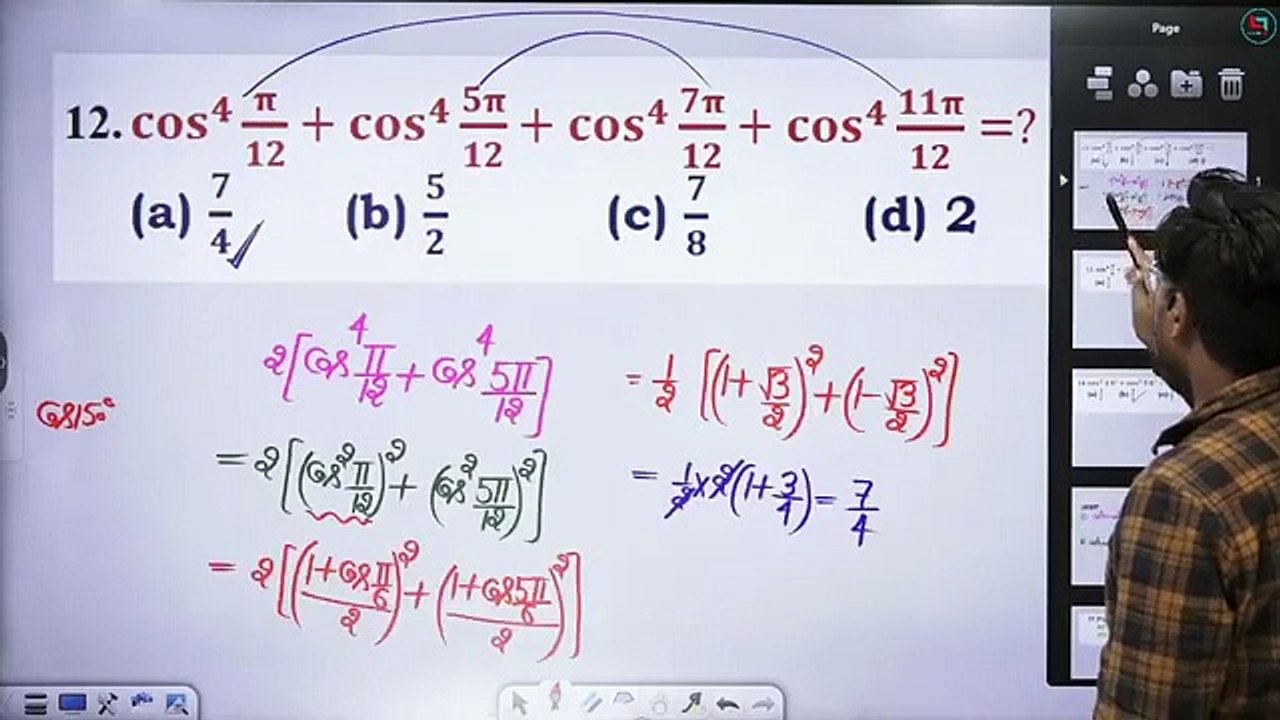 Page
12. cos⁴ π/12 + cos⁴ 5π/12 + cos⁴ 7π/12 + cos⁴ 11π/12 =?
(a) 7/4 ✓ (b) 5/2 (c) 7/8 (d) 2
2[cos⁴ π/12 + cos⁴ 5π/12]
= 2[(cos² π/12)² + (cos² 5π/12)²]
= 2[((1+cos π/6)/2)² + ((1+cos 5π/6)/2)²]
cos15°
= 1/2 [(1+√3/2)² + (1-√3/2)²]
= 1/2 × 2(1+3/4) = 7/4